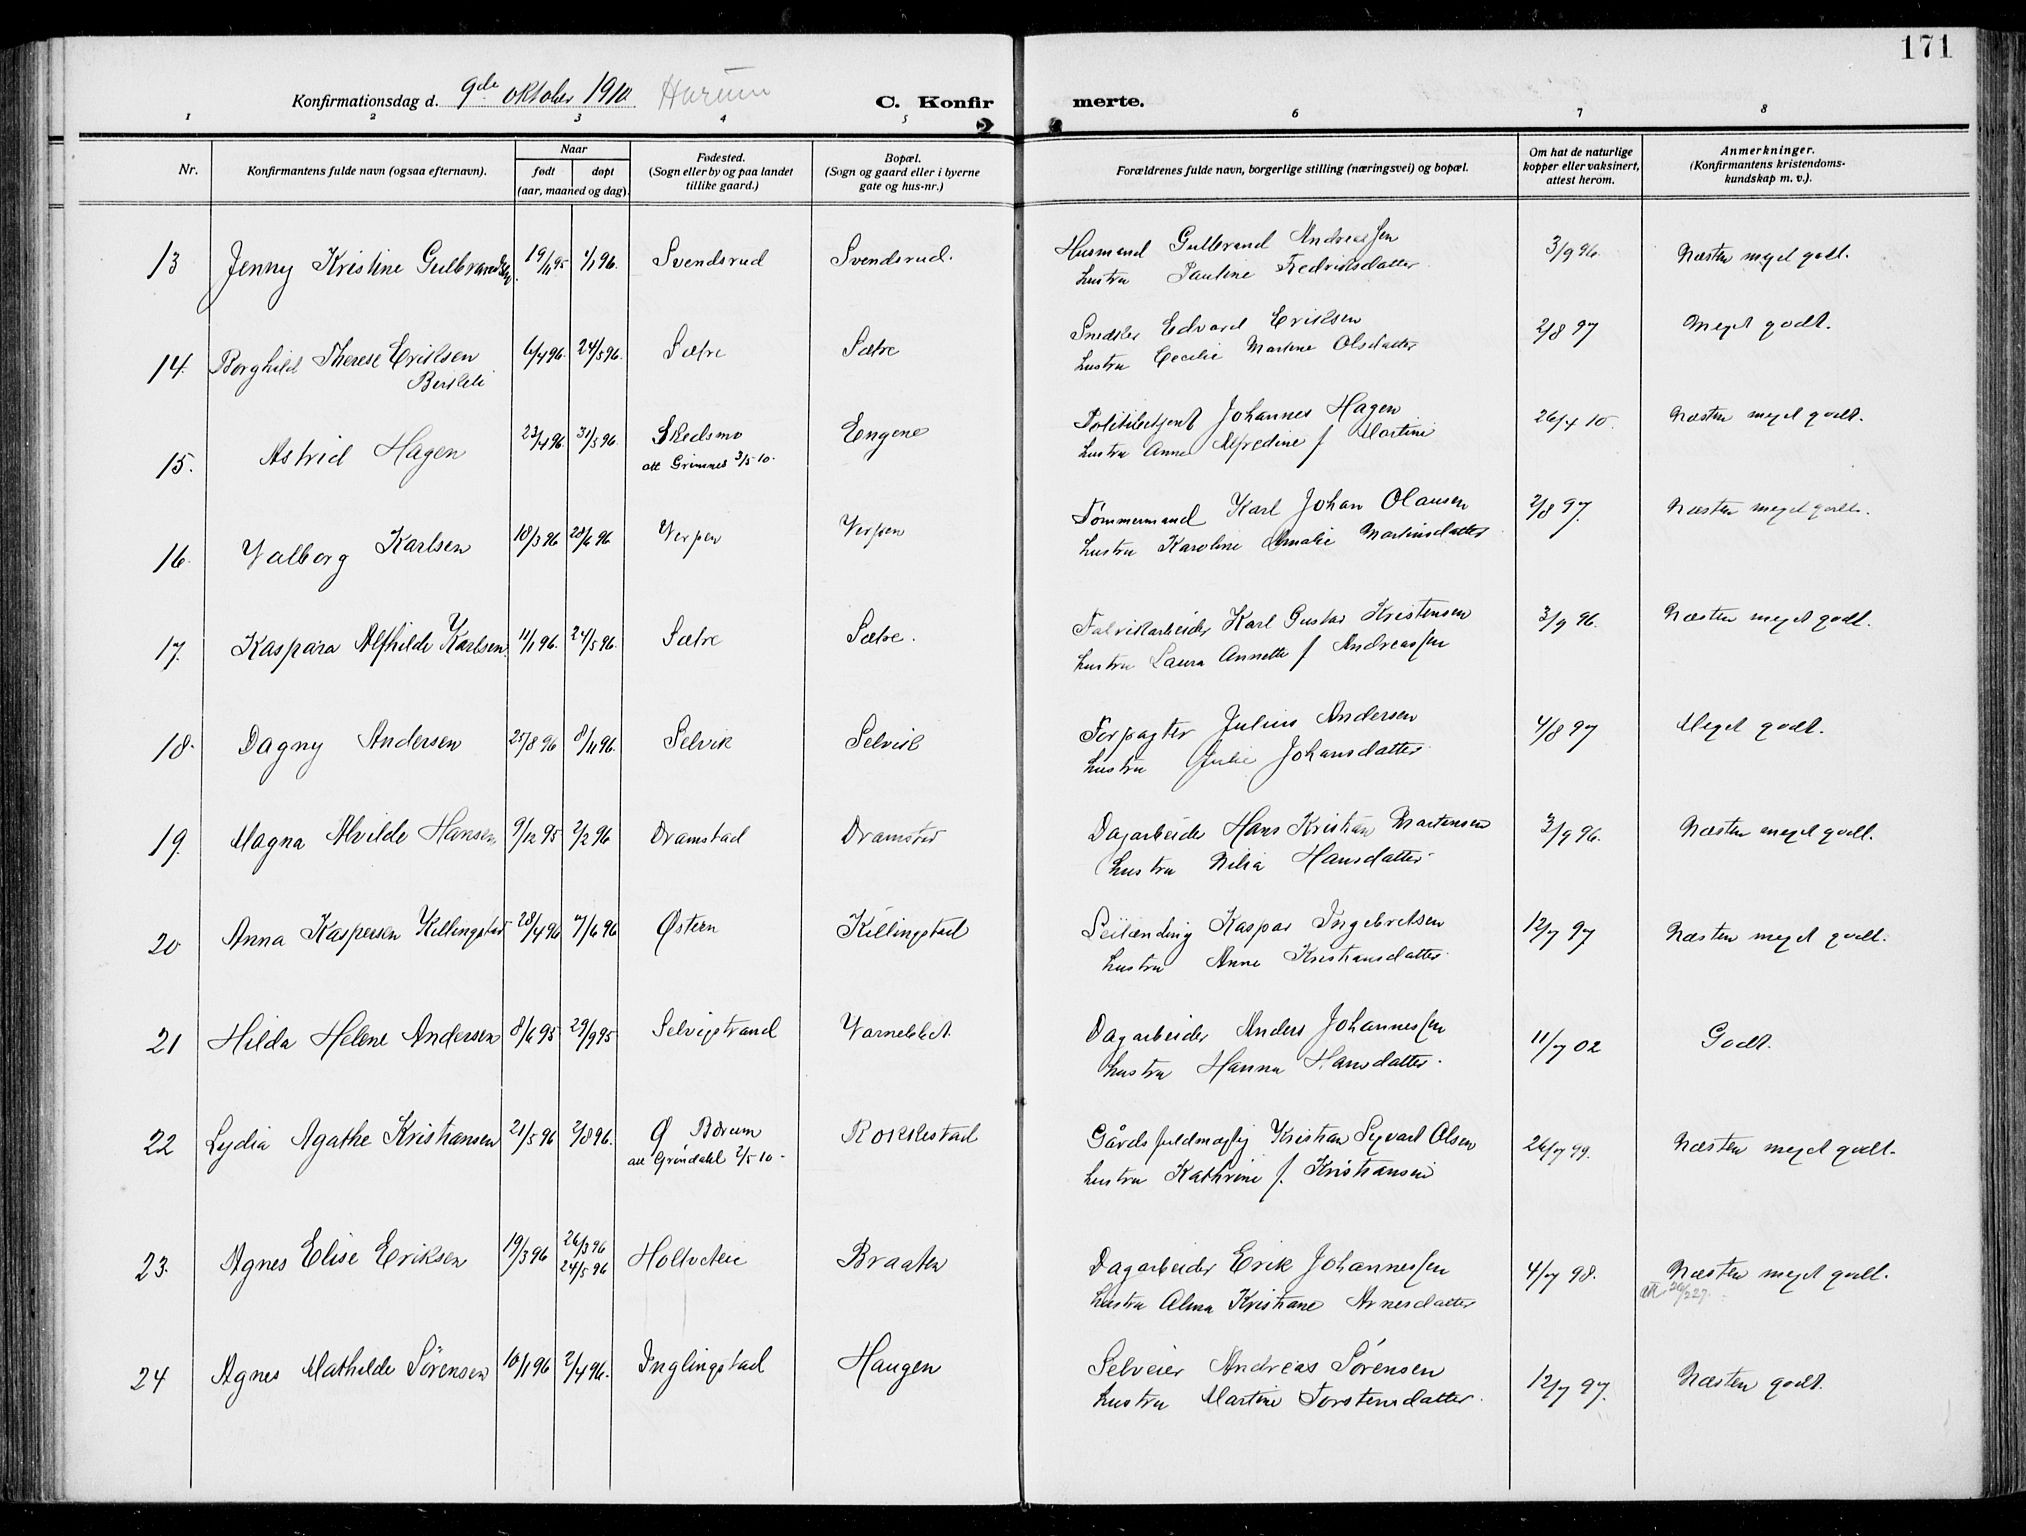 171
Konfirmationsdag d. 9de oktober 1910. Hurum
C. Konfirmerte.
1 2 3 4 5 6 7 8
Nr.
Konfirmantens fulde navn (ogsaa efternavn).
Naar
født døpt
(aar, maaned og dag).
Fødested.
(Sogn eller by og paa landet
tillike gaard.)
Bopæl.
(Sogn og gaard eller i byerne
gate og hus-nr.)
Forældrenes fulde navn, borgerlige stilling (næringsvei) og bopæl.
Om hat de naturlige
kopper eller vaksinert,
attest herom.
Anmerkninger.
(Konfirmantens kristendoms-
kundskap m. v.).
13 Jenny Kristine Gulbrandsen 19/11 95 1/1 96. Svendsrud Svendsrud. Husmand Gulbrand Andreassen 3/9 96. Næsten meget godt.
hustru Pauline Fredriksdatter
14. Borghild Therese Eriksen 6/4 96. 24/5 96. Sætre Sætre Snedker Edvard Eriksen 2/8 97 Meget godt.
Birkeli hustru Cecilie Martine Olsdatter
15. Astrid Hagen 23/4 96. 31/5 96. Skedsmo Engene Politibetjent Johannes Hagen 26/4 10. Næsten meget godt.
att Grimnes 3/5 10. hustru Anna Alfredine f Martini
16. Valborg Karlsen 18/3 96 28/6 96 Verpen Verpen Tømmermand Karl Johan Olausen 2/8 97. Næsten meget godt.
hustru Karoline Amalie Martinsdatter
17. Kaspara Alfhilde Karlsen 11/1 96. 24/5 96. Sætre Sætre. Fabrikarbeider Karl Gustav Kristensen 3/9 96. Næsten meget godt.
hustru Laura Annette f Andreassen
18. Dagny Andersen 25/8 96 8/11 96. Selvik Selvik Forpagter Julius Andersen 4/8 97 Meget godt.
hustru Julie Johansdatter.
19. Magna Alvilde Hansen 9/12 95 2/2 96 Dramstad Dramstad Dagarbeider Hans Kristian Martinsen 3/9 96. Næsten meget godt.
hustru Nilia Hansdatter.
20 Anna Kaspersen Killingstad 28/4 96 7/6 96 Østern Killingstad Leilending Kaspar Ingebretsen 12/7 97 Næsten meget godt.
hustru Anne Kristiansdatter.
21 Hilda Helene Andersen 8/6 95 29/9 95. Selvigstrand Varnebbet. Dagarbeider Anders Johannessen 11/7 02 Godt.
hustru Hanna Hansdatter.
22 Lydia Agathe Kristiansen 21/5 96 2/8 96. Ø Bærum Rokkestad Gårdsfuldmægtig Kristian Sigvart Olsen 26/7 99. Næsten meget godt.
att Grøndahl 2/5 10. hustru Kathrine f. Kristiansen
23. Agnes Elise Eriksen 19/3 96 26/3 96 Holtveteie Braaten Dagarbeider Erik Johannessen 4/7 98. Næsten meget godt.
24/5 96 hustru Alma Kristiane Arnesdatter
24 Agnes Mathilde Sørensen 10/1 96 2/4 96. Inglingstad Haugen Selveier Andreas Sørensen 12/7 97. Næsten godt.
hustru Martine Torstensdatter.